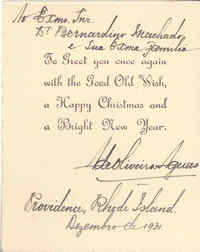 Ao Exmo. Snr.
Dr. Bernardino Machado
e Sua Exma. familia
To Greet you once again
with the Good Old Wish,
a Happy Christmas and
a Bright New Year.
de Oliveira
Providence, Rhode Island.
Dezembro de 1931